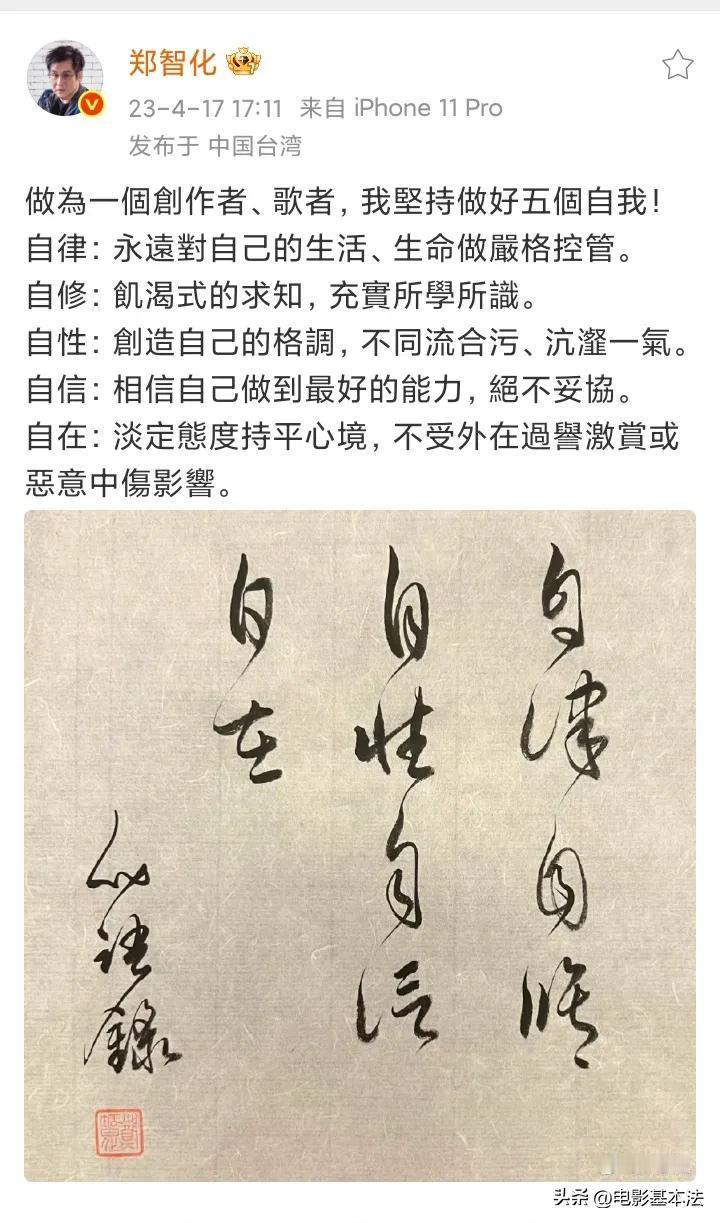 郑智化
23-4-17 17:11 来自 iPhone 11 Pro
发布于 中国台湾
做為一個創作者、歌者，我堅持做好五個自我！
自律：永遠對自己的生活、生命做嚴格控管。
自修：飢渴式的求知，充實所學所識。
自性：創造自己的格調，不同流合污、沆瀣一氣。
自信：相信自己做到最好的能力，絕不妥協。
自在：淡定態度持平心境，不受外在過譽激賞或
惡意中傷影響。
自律自修
自性自信
自在
心語錄
头条 @电影基本法